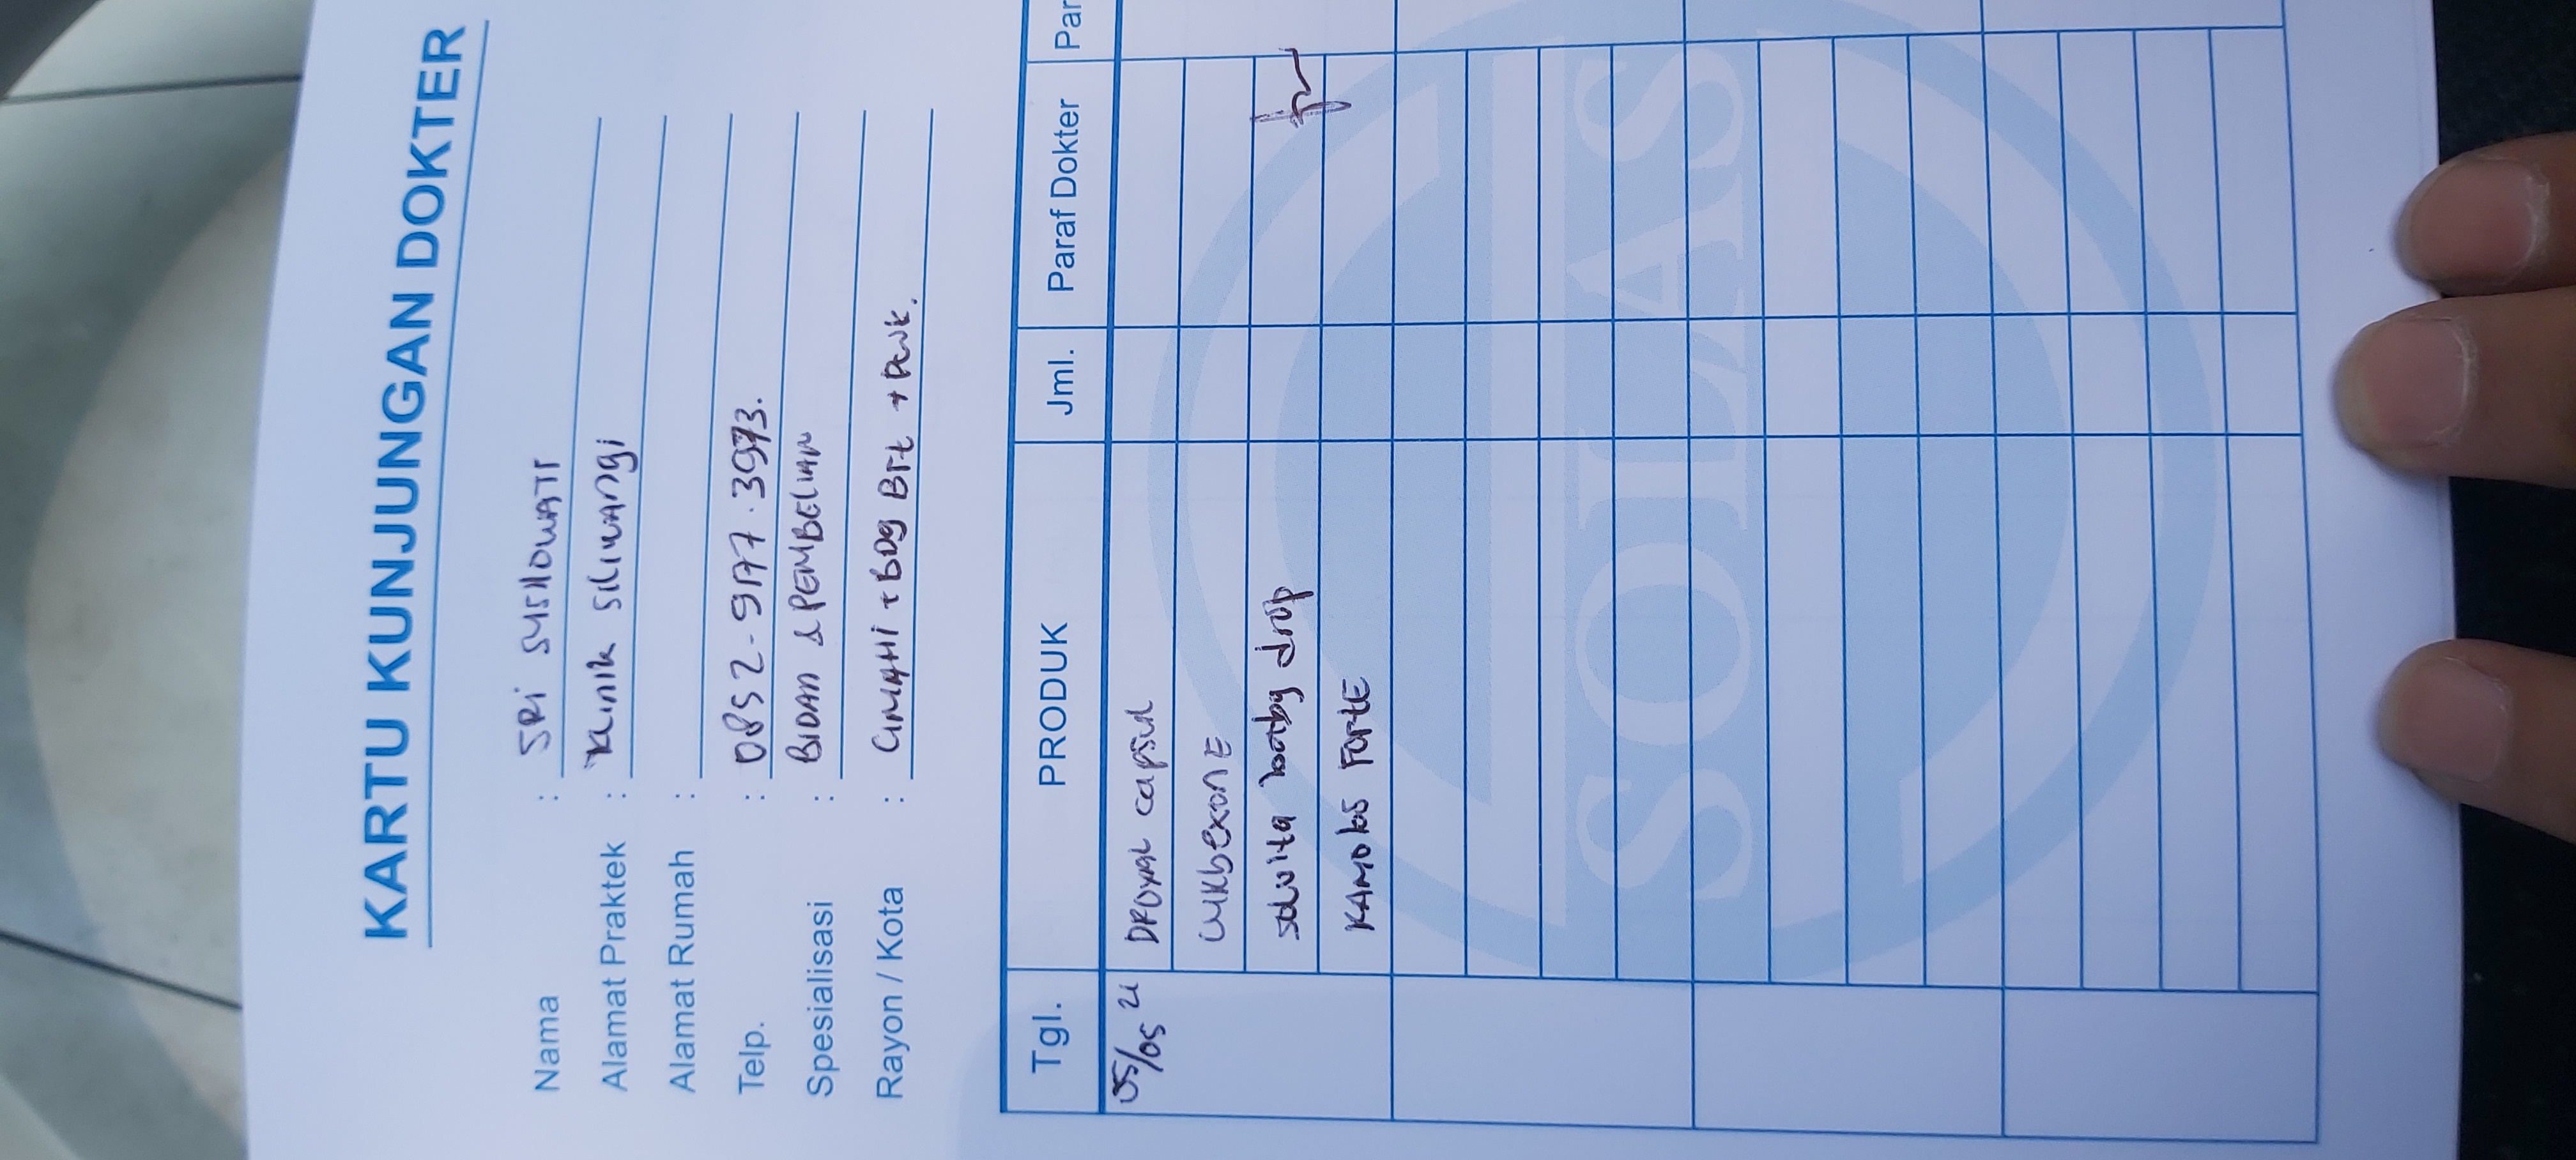 KARTU KUNJUNGAN DOKTER
Nama : SRI SUSILOWATI
Alamat Praktek : Klinik Siliwangi
Alamat Rumah :
Telp. : 0852-9177.3973.
Spesialisasi : BIDAN & PEMBELIAN
Rayon / Kota : CIMAHI + BDg Brt + PWK.
Tgl. PRODUK Jml. Paraf Dokter Par
05/05 21 DROXAL capsul
solvita baby drop
Forte
SOLAS